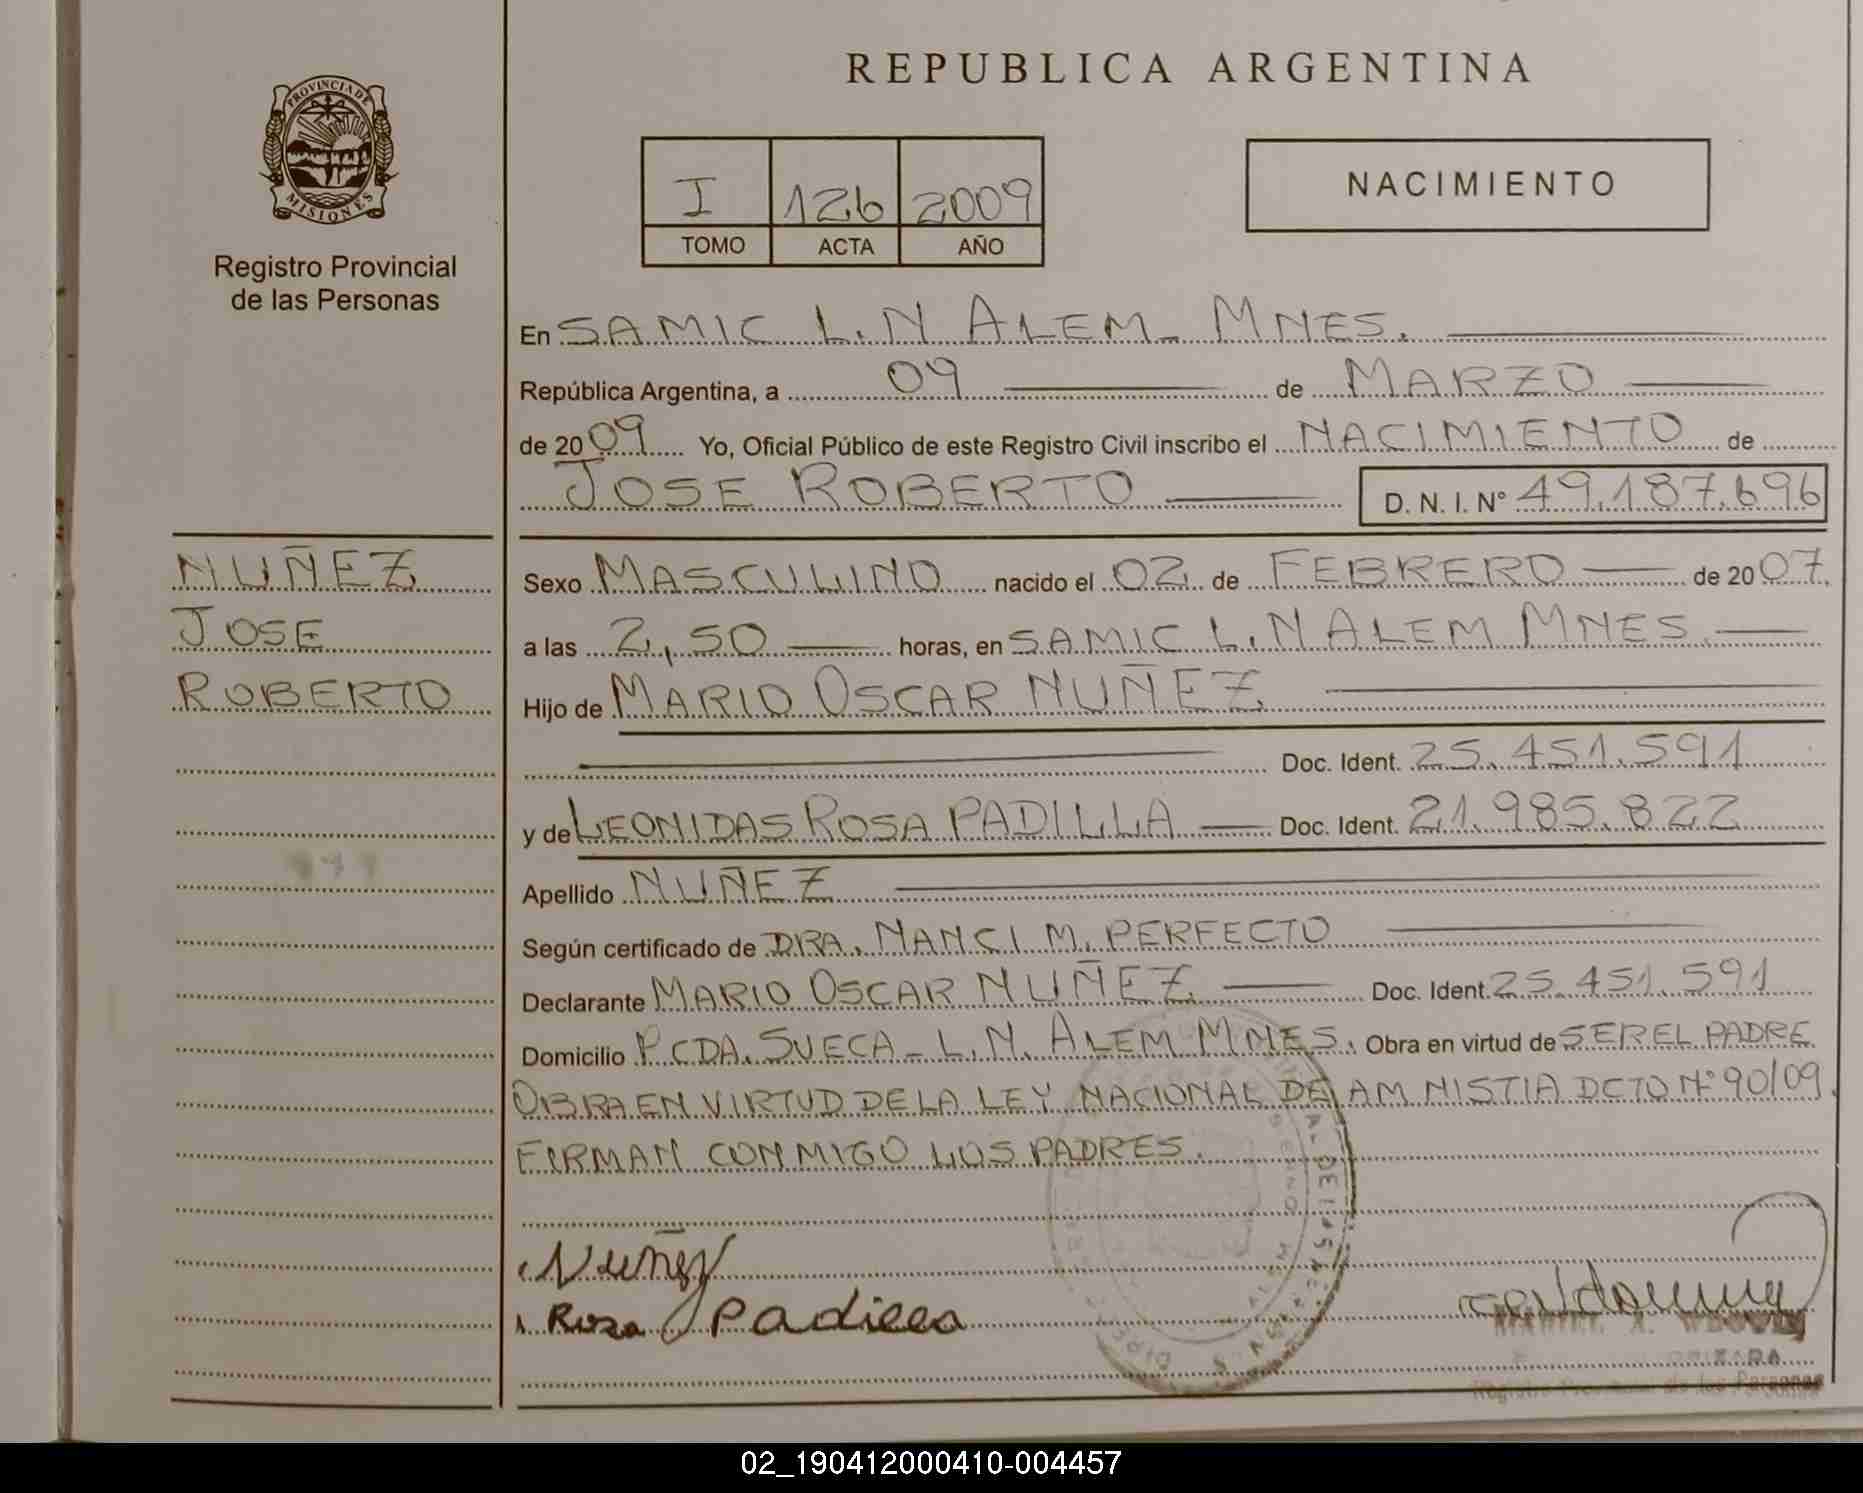 REPUBLICA ARGENTINA
PROVINCIA DE
MISIONES
Registro Provincial
de las Personas
I 126 2009
TOMO ACTA AÑO
NACIMIENTO
En SAMIC L.N ALEM - MNES.
República Argentina, a 09 de MARZO
de 2009 Yo, Oficial Público de este Registro Civil inscribo el NACIMIENTO de
JOSE ROBERTO D. N. I. N° 49.187.696
NUÑEZ
JOSE
ROBERTO
Sexo MASCULINO nacido el 02 de FEBRERO de 2007
a las 2,50 horas, en SAMIC L.N ALEM MNES.
Hijo de MARIO OSCAR NUÑEZ
Doc. Ident. 25.451.591
y de LEONIDAS ROSA PADILLA Doc. Ident. 21.985.822
Apellido NUÑEZ
Según certificado de DRA. NANCI M. PERFECTO
Declarante MARIO OSCAR NUÑEZ Doc. Ident. 25.451.591
Domicilio PCDA. SUECA - L.N. ALEM MNES. Obra en virtud de SER EL PADRE
OBRA EN VIRTUD DE LA LEY NACIONAL DE AMNISTIA DCTO Nº 90/09.
FIRMAN CONMIGO LOS PADRES.
Nuñez
Rosa Padilla
Registro Provincial de las Personas
02_190412000410-004457